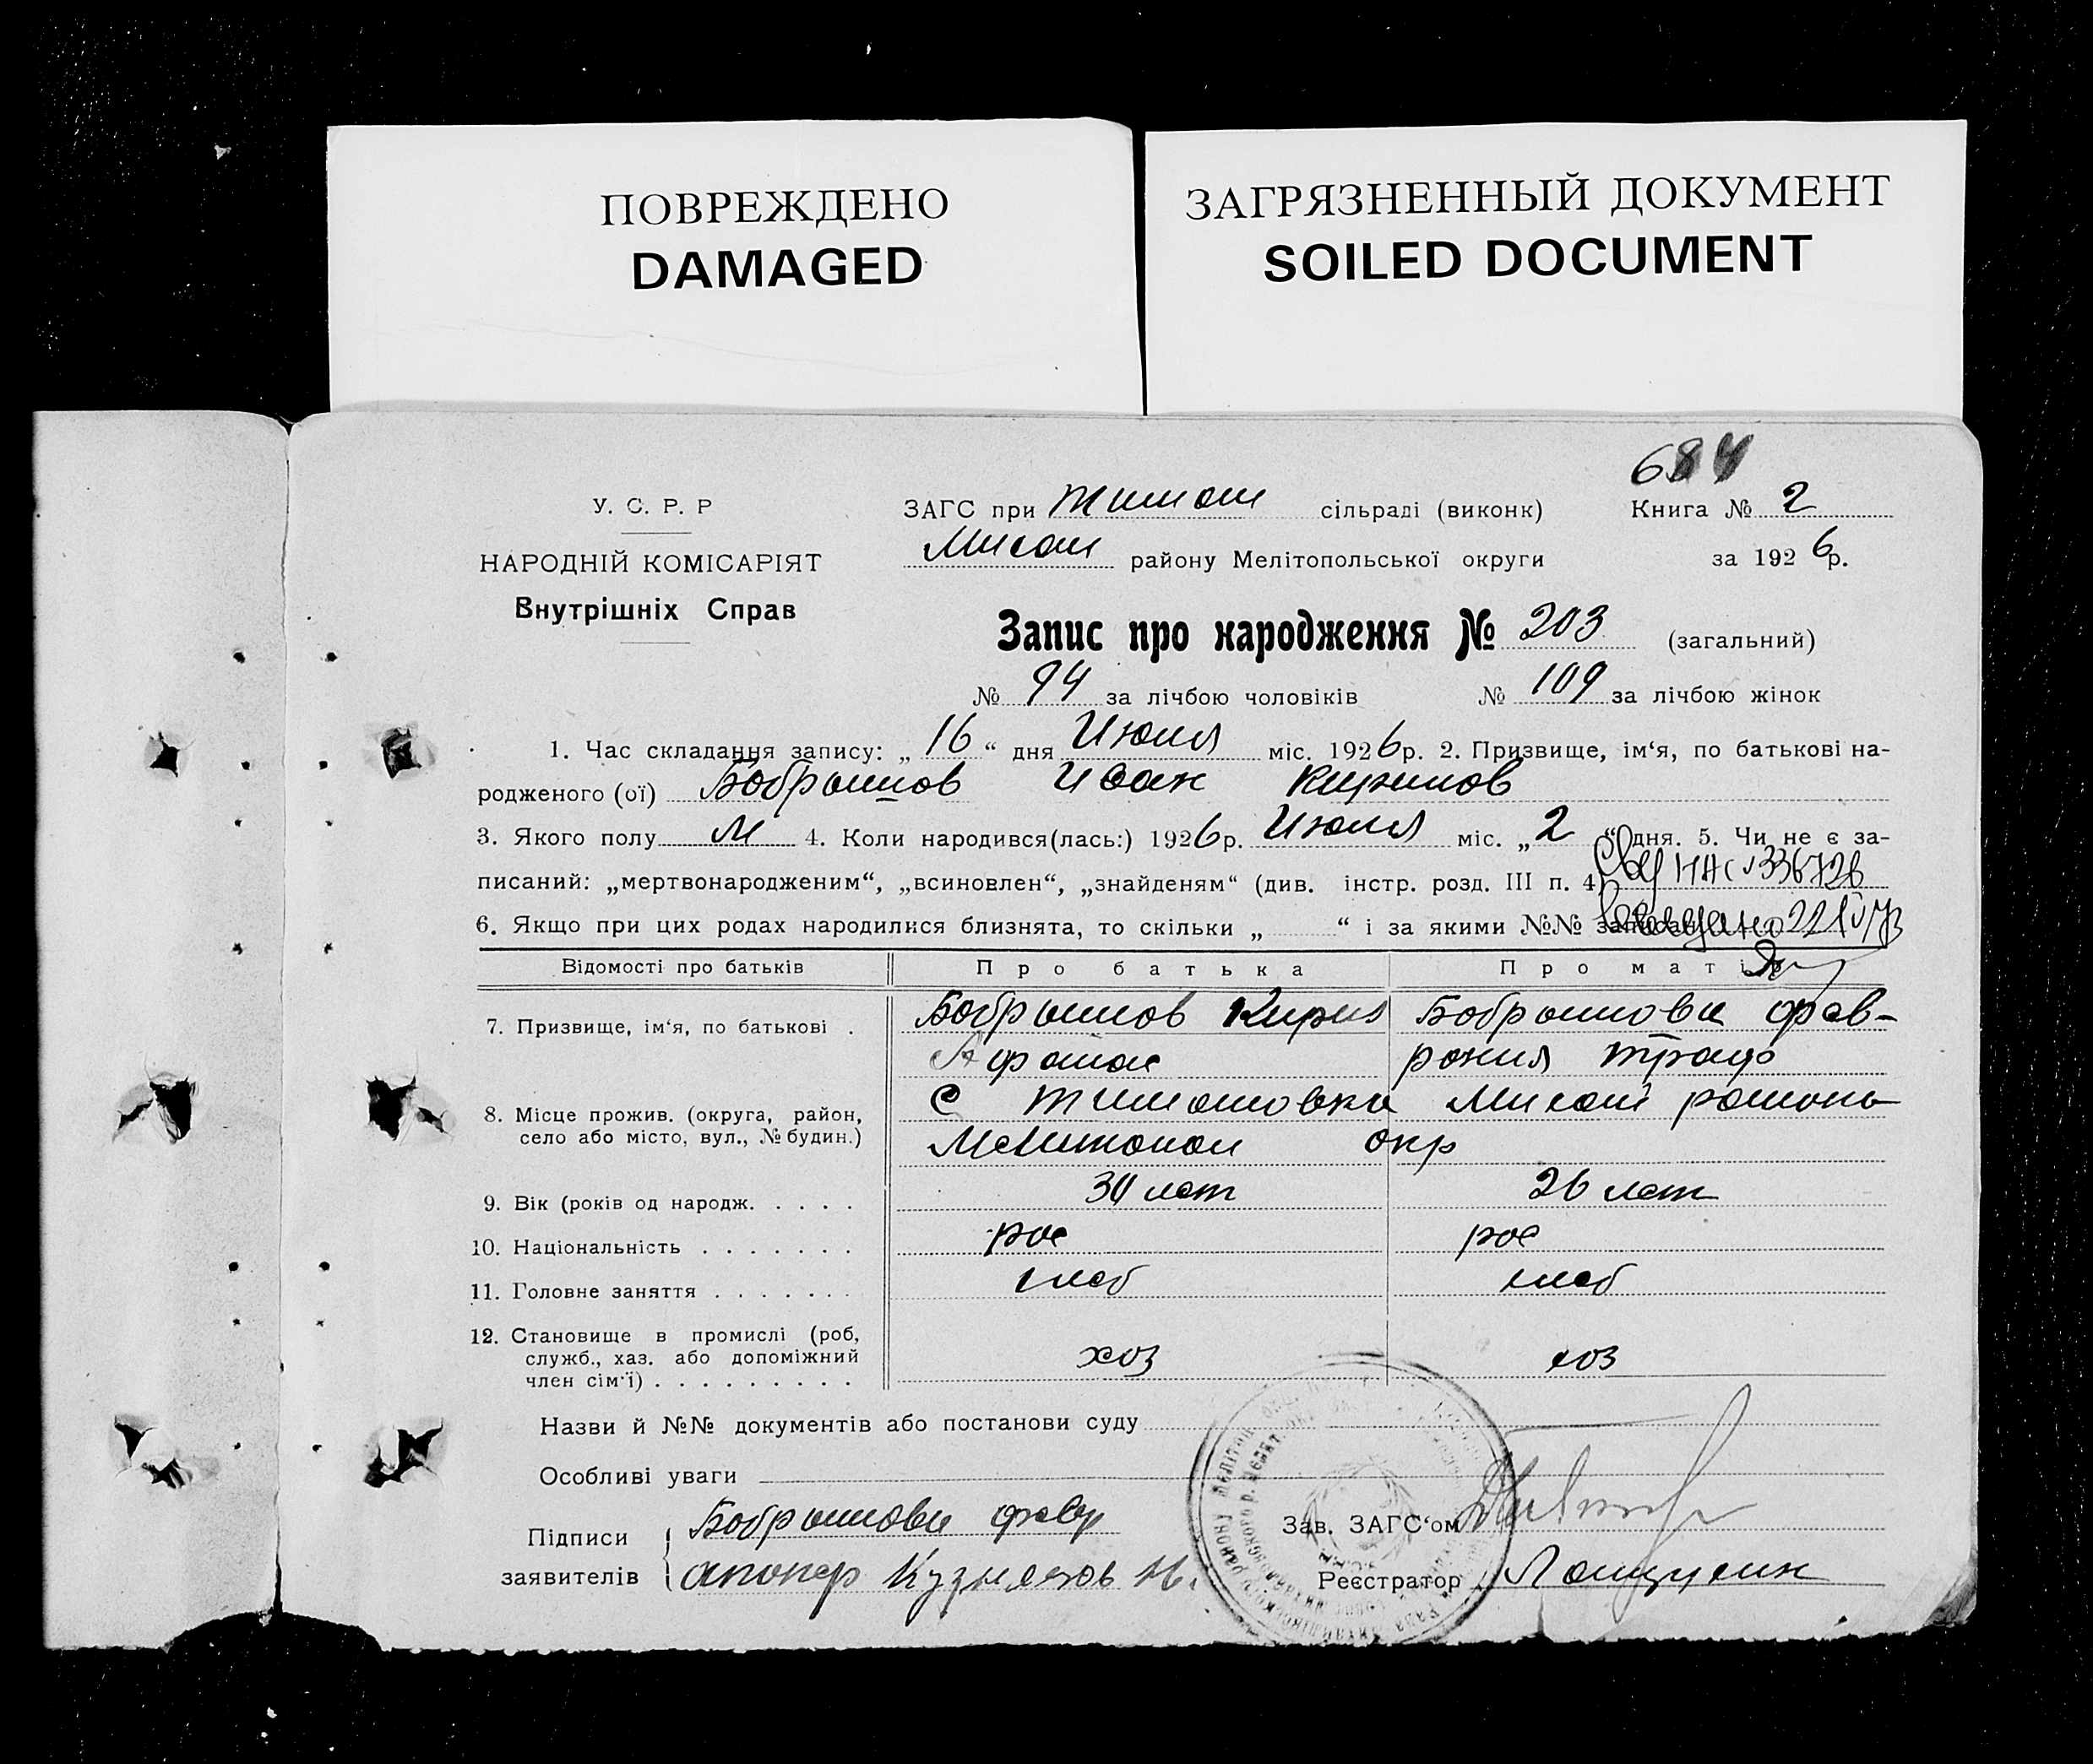 ПОВРЕЖДЕНО
DAMAGED
ЗАГРЯЗНЕННЫЙ ДОКУМЕНТ
SOILED DOCUMENT
684
У. С. Р. Р
НАРОДНІЙ КОМІСАРІЯТ
Внутрішніх Справ
ЗАГС при Тимош сільраді (виконк) Книга № 2
Михай району Мелітопольської округи за 1926р.
Запис про народження № 203 (загальний)
№ 94 за лічбою чоловіків № 109 за лічбою жінок
1. Час складання запису: „ 16 “ дня Июля міс. 1926р. 2. Призвище, ім‘я, по батькові на-
родженого (ої) Бобрышов Иван Кирилов
3. Якого полу М 4. Коли народився(лась:) 1926р. Июля міс. „ 2 “ дня. 5. Чи не є за-
писаний: „мертвонародженим“, „всиновлен“, „знайденям“ (див. інстр. розд. III п. 4)
6. Якщо при цих родах народилися близнята, то скільки „ “ і за якими №№ записані
Відомості про батьків Про батька Про матір
7. Призвище, ім‘я, по батькові . Бобрышов Кирил Бобрышова Фев-
Афанас рония Троф
8. Місце прожив. (округа, район, село або місто, вул., № будин.) С Тимошовка Михай района
Мелитопол окр
9. Вік (років од народж. . . . . 30 лет 26 лет
10. Національність . . . . . . . рос рос
11. Головне заняття . . . . . . . хлеб хлеб
12. Становище в промислі (роб, служб., хаз. або допоміжний член сім‘ї) . . . . . . . . . хоз хоз
Назви й №№ документів або постанови суду
Особливі уваги
Підписи заявителів Бобрышова Февр
Кузнецов
Зав. ЗАГС‘ом
Реєстратор